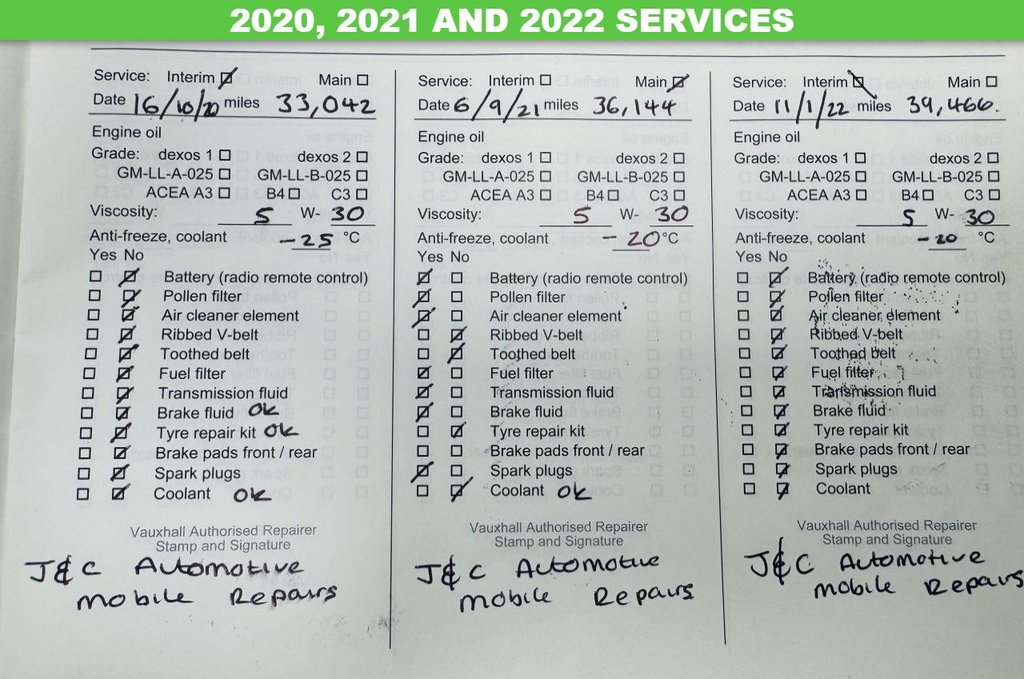 2020, 2021 AND 2022 SERVICES
Service: Interim ☑ Main ☐
Date 16/10/20 miles 33,042
Engine oil
Grade: dexos 1 ☐ dexos 2 ☐
GM-LL-A-025 ☐ GM-LL-B-025 ☐
ACEA A3 ☐ B4 ☐ C3 ☐
Viscosity: 5 W- 30
Anti-freeze, coolant -25 °C
Yes No
☐ ☑ Battery (radio remote control)
☐ ☑ Pollen filter
☐ ☑ Air cleaner element
☐ ☑ Ribbed V-belt
☐ ☑ Toothed belt
☐ ☑ Fuel filter
☐ ☑ Transmission fluid
☐ ☑ Brake fluid OK
☐ ☑ Tyre repair kit OK
☐ ☐ Brake pads front / rear
☐ ☑ Spark plugs
☐ ☑ Coolant OK
Vauxhall Authorised Repairer
Stamp and Signature
J&C Automotive
Mobile Repairs
Service: Interim ☐ Main ☑
Date 6/9/21 miles 36,144
Engine oil
Grade: dexos 1 ☐ dexos 2 ☐
GM-LL-A-025 ☐ GM-LL-B-025 ☐
ACEA A3 ☐ B4 ☐ C3 ☐
Viscosity: 5 W- 30
Anti-freeze, coolant -20 °C
Yes No
☑ ☐ Battery (radio remote control)
☑ ☐ Pollen filter
☑ ☐ Air cleaner element
☐ ☑ Ribbed V-belt
☐ ☑ Toothed belt
☑ ☐ Fuel filter
☑ ☐ Transmission fluid
☑ ☐ Brake fluid
☐ ☑ Tyre repair kit
☐ ☐ Brake pads front / rear
☑ ☐ Spark plugs
☐ ☑ Coolant OK
Vauxhall Authorised Repairer
Stamp and Signature
J&C Automotive
Mobile Repairs
Service: Interim ☑ Main ☐
Date 11/1/22 miles 39,466.
Engine oil
Grade: dexos 1 ☐ dexos 2 ☐
GM-LL-A-025 ☐ GM-LL-B-025 ☐
ACEA A3 ☐ B4 ☐ C3 ☐
Viscosity: 5 W- 30
Anti-freeze, coolant -20 °C
Yes No
☐ ☑ Battery (radio remote control)
☐ ☑ Pollen filter
☐ ☑ Air cleaner element
☐ ☑ Ribbed V-belt
☐ ☑ Toothed belt
☐ ☑ Fuel filter
☐ ☑ Transmission fluid
☐ ☑ Brake fluid
☐ ☑ Tyre repair kit
☐ ☑ Brake pads front / rear
☐ ☑ Spark plugs
☐ ☑ Coolant
Vauxhall Authorised Repairer
Stamp and Signature
J&C Automotive
Mobile Repairs